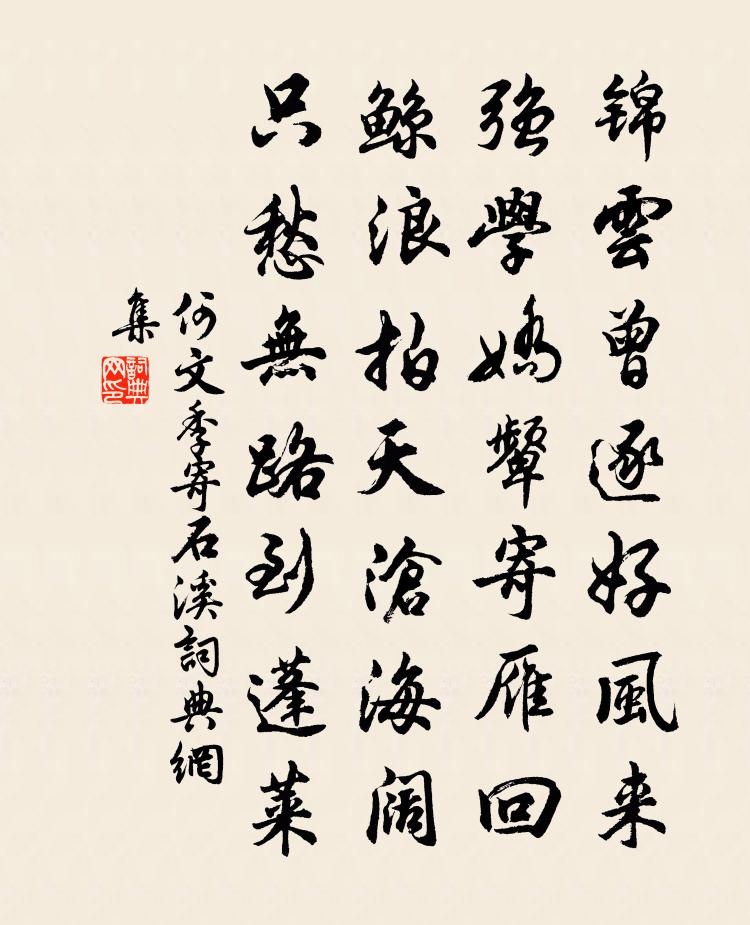 锦雲曾逐好風来
强學嬌顰寄雁回
鲸浪拍天滄海阔
只愁無路到蓬莱
何文季寄石溪詞典網
集
詞典
网印